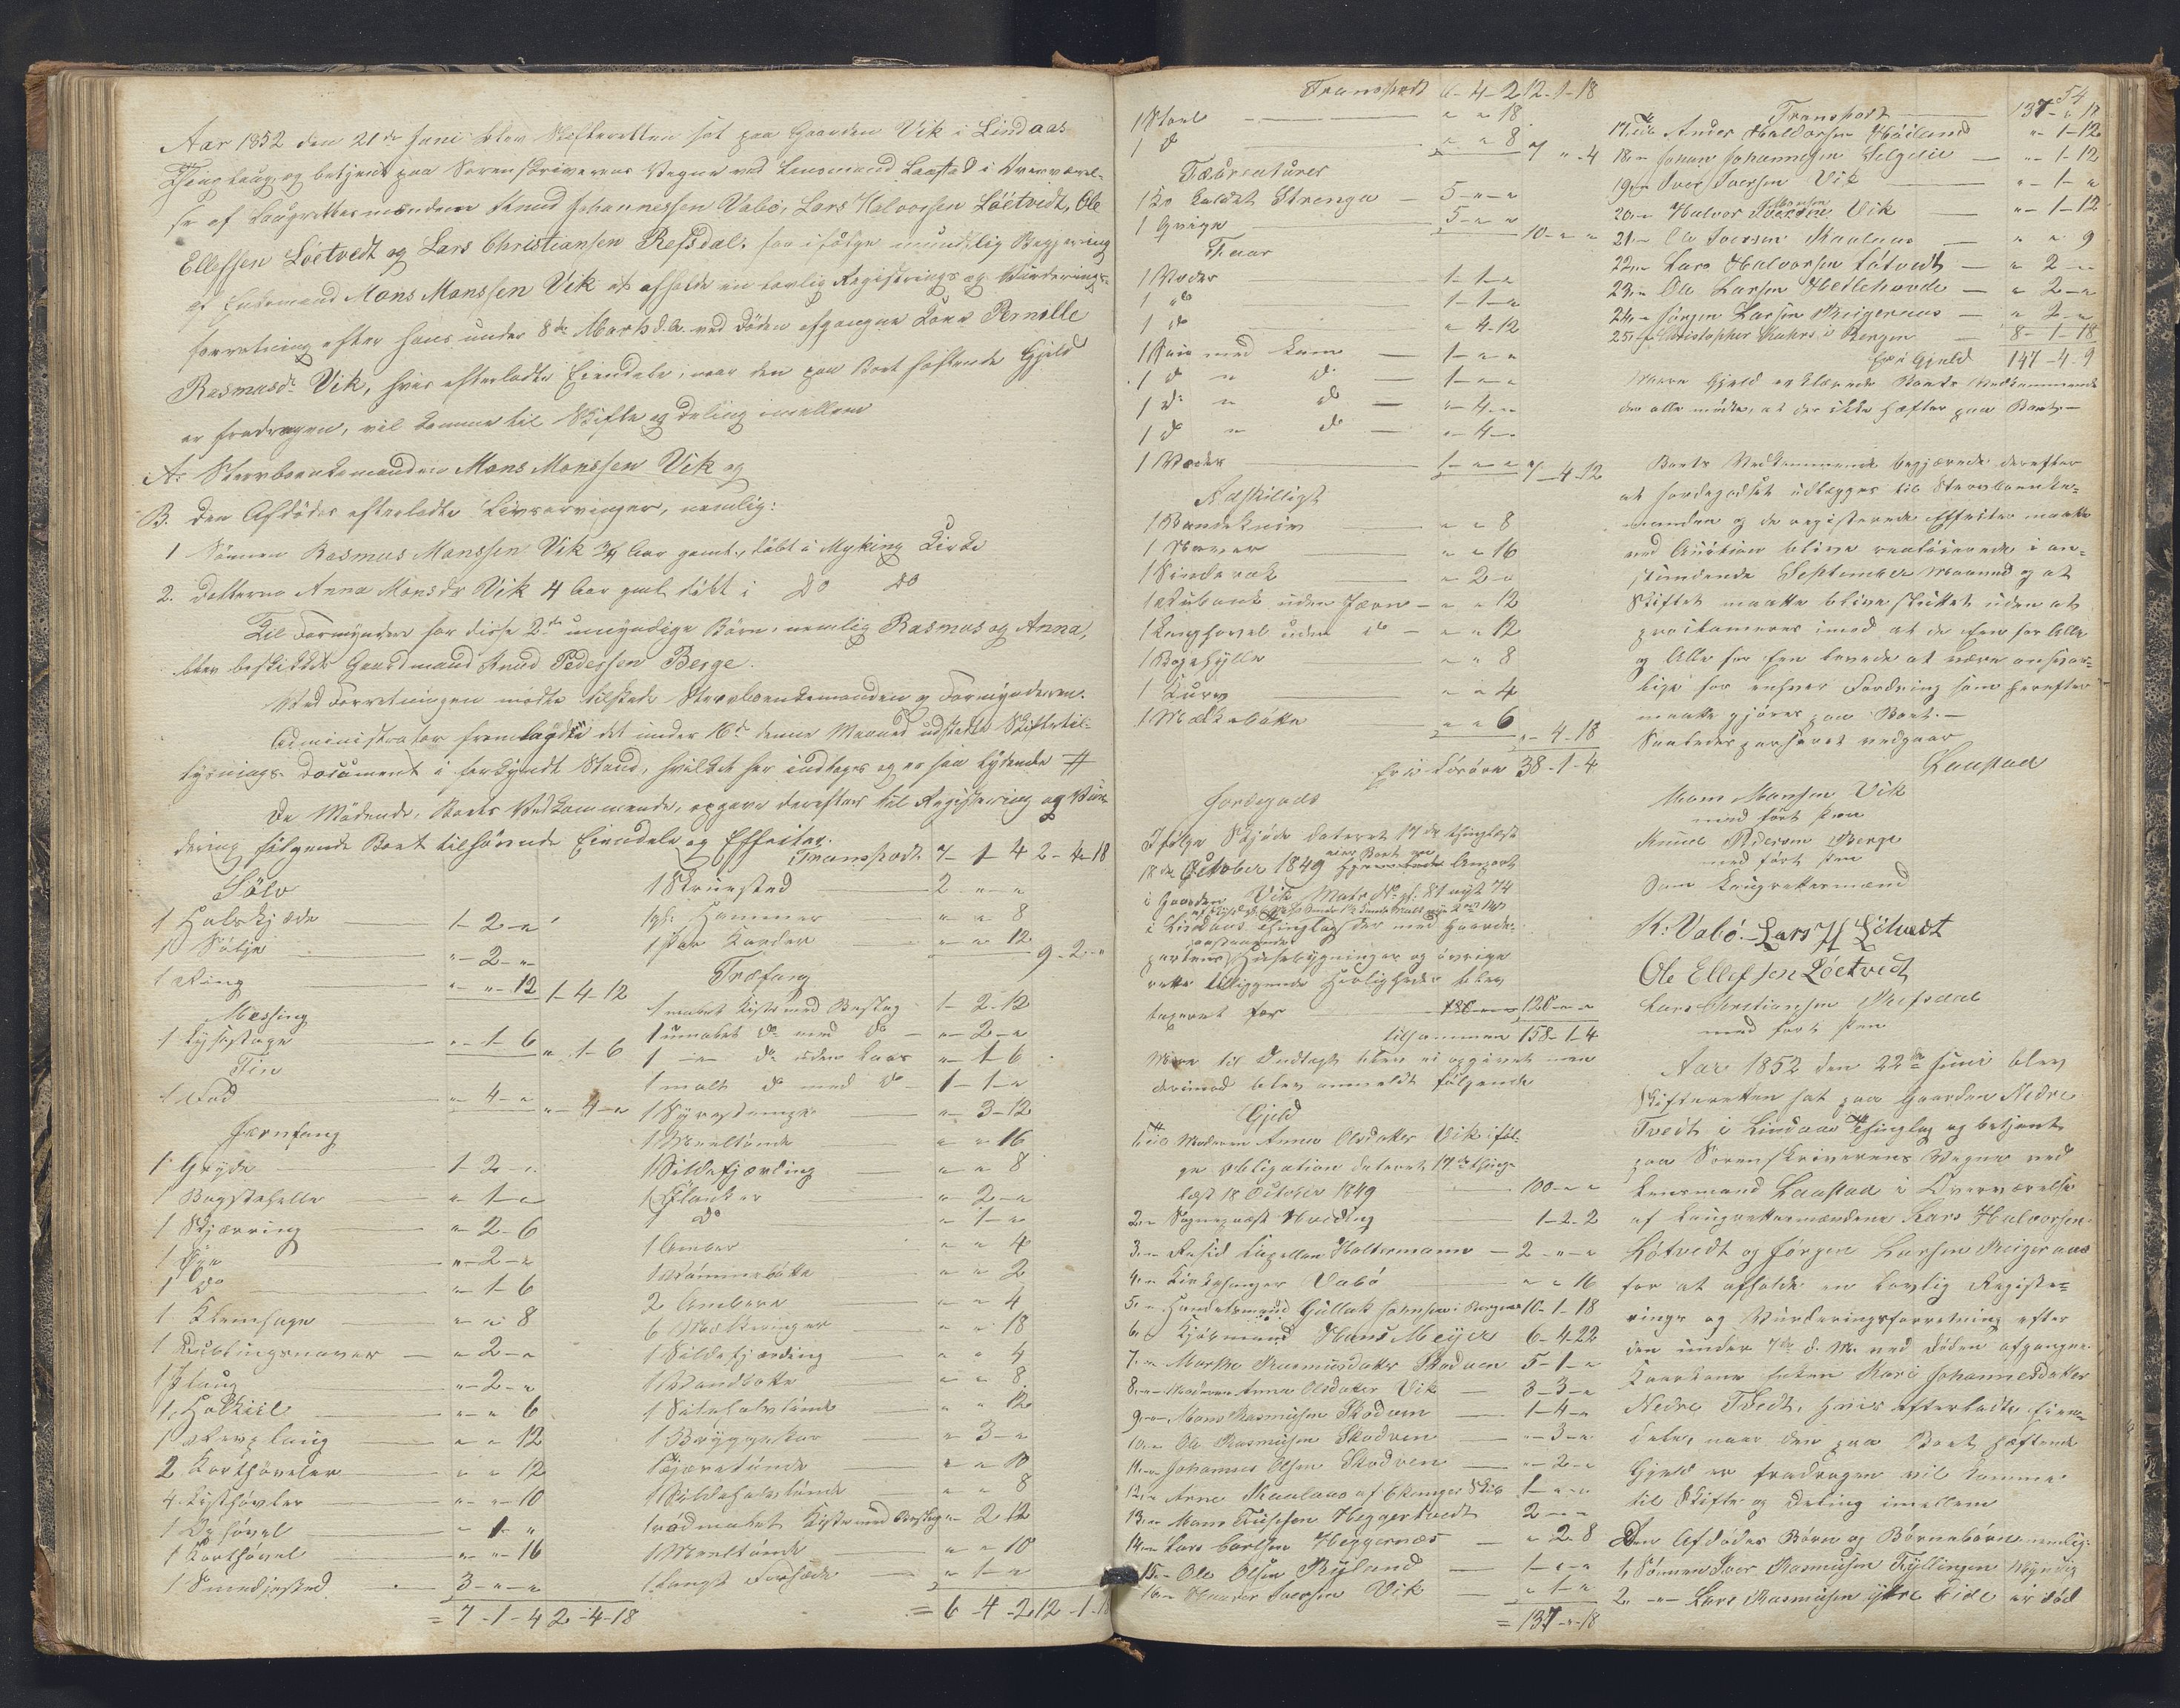 Aar 1852 den 21de Juni blev Skifteretten sat paa Gaarden Vik i Lindaas
Thinglaug og betjent paa Sorenskriverens Vegne ved Lensmand Laastad i Overværel-
se af Laugrettesmændene Knud Johannessen Vabö, Lars Halvorsen Löetvedt, Ole
Ellefsen Löetvedt og Lars Christiansen Refsdal, for ifölge mundtlig Begjæring
af Enkemand Mons Monssen Vik at afholde en lovlig Registrerings og Vurderings-
forretning efter hans under 8de Marts d. A. ved Döden afgangne Kone Pernille
Rasmusdr Vik, hvis efterladte Eiendele, naar den paa Boet heftende Gjeld
er fradragen, vil komme til Skifte og Deling imellem
A. Stervboenkemanden Mons Monssen Vik og
B. den Afdödes efterladte Livsarvinger, nemlig:
1 Sönnen Rasmus Monssen Vik ¾ Aar gaml., döbt i Myking Kirke
2. Datteren Anna Monsdr Vik 4 Aar gml. döbt i Do Do
Til Formynder for disse 2de umyndige Börn, nemlig Rasmus og Anna,
blev beskikket Gaardmand Knud Pedersen Berge.
Ved Forretningen mödte tilstede Stervboenkemanden og Formynderen.
Administrator fremlagde det under 16de denne Maaned udstedte Skiftetil-
lysnings-Document i forkyndt Stand, hvilket her indtages og er saa lydende #
De Mödende, Boets Vedkommende, opgave derefter til Registrering og Vur-
dering fölgende Boet tilhörende Eiendele og Effecter.
Sölv
1 Halskjæde 1-2-"
1 Sölje "-2-"
1 Ring "-"-12 1-4-12
Messing
1 Lysestage "-1-6 "-1-6
Tin
1 Fad "-4-" "-4-"
Jernfang
1 Gryde 1-2-"
1 Bagstehelle "-1-"
1 Skjærring "-2-6
1 Öxe "-2-"
1 Do "-1-6
1 Klemsage "-"-8
1 Dublingsnaver "-2-"
1 Plaug "-2-"
1 Hulkiil "-"-6
1 "-"-12
2 Korthövler "-"-12
4 Listhövler "-"-10
1 "-1-"
1 Korthövel "-"-16
1 Smedjested 3-"-"
= 7-1-4 2-4-18
Transport 7-1-4 2-4-18
1 Skruested 2-"-"
1 gl: Hammer "-"-8
1 Par Karder "-"-12 9-2-"
Træfang
1 malet Kiste med Beslag 1-2-12
1 umalet do med do "-2-"
1 -"- do uden Laas "-1-6
1 malt do med do 1-1-"
1 Syrestampe "-3-12
1 Meeltönde "-"-16
1 Sildefjerding "-"-8
1 "-2-"
1 Do "-1-"
1 Amber "-"-4
1 Römmebötte "-"-2
2 Ambere "-"-4
6 Melkeringer "-"-18
1 Sildefjerding "-"-4
1 Vandbötte "-"-8
1 Sildehalvtönde "-"-12
1 Bryggekar "-3-"
1 Kjöretönde "-"-10
1 Sildehalvtönde "-"-8
1 rödmalet Kiste med Beslag "-2-12
1 Meeltönde "-"-10
1 Langt Forsæde "-1-"
= 6-4-2 12-1-18
Transport 6-4-2 12-1-18
1 Stoel "-"-18
1 do "-"-8 7-"-4
Kreaturer
1 Ko kaldet Strenga 5-"-"
1 Qvige 5-"-" 10-"-"
Faar
1 Veder 1-1-"
1 do 1-1-"
1 do "-4-12
1 Souv med Lam 1-"-"
1 do " do 1-"-"
1 do " do "-4-"
1 do " do "-4-"
1 Veder 1-"-" 7-4-12
Adskilligt
1 Baandekniv "-"-8
1 Naver "-"-16
1 "-2-"
1 Rubank uden Jern "-"-12
1 Langhövel uden do "-"-12
1 Bogehylle "-"-8
1 Kurv "-"-4
1 Melkebötte "-"-6 "-4-18
Er i Lösöre 38-1-4
Jordegods
Ifölge Skjöde dateret 17de thinglæst
18de October 1849 eier Boet en Anpart
i Gaarden Vik Matr. No gl. 81 nyt 74
i Lindaas Thinglag der med Gaarde-
partens paastaaende Huusebygninger og övrige
rette tilliggende Herligheder blev
taxeret for 120-"-"
tilsammen 158-1-4
Mere til Indtægt blev ei opgivet men
derimod blev anmeldt fölgende
Gjeld
1, til Moderen Anna Olsdatter Vik iföl-
ge Obligation dateret 17de thing-
læst 18 October 1849 100-"-"
2, " Sognepræst Hvidling 1-2-2
3, " Resid. Capellan Haltermann 2-"-"
4, " Kirkesanger Vabö "-"-16
5, " Handelsmand Gullak Johnsen i Bergen 10-1-18
6, " Kjöbmand Hans Meyer 6-4-22
7, " Marthe Rasmusdatter Skodven 5-1-"
8, " Moderen Anna Olsdatter Vik 3-3-"
9, " Mons Rasmussen Skodven 1-4-"
10, " Ole Rasmussen Skodven "-3-"
11, " Johannes Olsen Skodven "-2-"
12, " Arne Skaulaas 1-"-"
13, " Mons Heggertvedt 2-"-"
14, " Lars Carlsen Heggernæs "-2-8
15, " Ole Olsen Ryland 1-"-"
16, " Iversen Vik "-1-"
= 137-"-18
54
Transport 137-"-18
17, til Anders Haldorsen Höiland "-1-12
18, " Johan Johannesen Helgelie "-1-12
19, " Iver Iversen Vik "-1-"
20, " Halvor Monsen Vik "-1-12
21, " Ole Iversen Skaulaas "-"-9
22, " Lars Halvorsen Lötvedt "-2-"
23, " Ole Larsen Hetlehovde "-2-"
24, " Jörgen Larsen Risgeraas "-2-"
25, " Christopher Kahrs i Bergen 8-1-18
Er i Gjeld 147-4-9
Mere Gjeld erklærede Boets Vedkommende
der alle mödte, at der ikke hæfter paa Boet.—
Boets Vedkommende begjærede derefter
at Jordegodset udlægges til Stervboenke-
manden og de registrerede Effecter maatte
ved Auction blive realiserede i an-
stundende September Maaned og at
Skiftet maatte blive sluttet uden at
proclameres imod at de Een for Alle
og Alle for Een lovede at være ansvar-
lige for enhver Fordring som herefter
maatte gjöres paa Boet.—
Saaledes passeret vedgaar
Laastad
Mons Monsen Vik
med fört Pen
Knud Pedersen Berge
med fört Pen
Som Laugrettesmænd
K: Vabö. Lars H Lötvedt
Ole Ellefsen Löetvedt
Lars Christiansen Refsdal
med fört Pen
Aar 1852 den 22de Juni blev
Skifteretten sat paa Gaarden Nedre
Tvedt i Lindaas Thinglag og betjent
paa Sorenskriverens Vegne ved
Lensmand Laastad i Overværelse
af Laugrettesmændene Lars Halvorsen
Lötvedt og Jörgen Larsen Risgeraas
for at afholde en lovlig Registre-
rings og Vurderingsforretning efter
den under 7de d. M. ved Döden afgangne
Kaarkone Enken Kari Johannesdatter
Nedre Tvedt, hvis efterladte Eien-
dele, naar den paa Boet hæftende
Gjeld er fradragen vil komme
til Skifte og Deling imellem
Den Afdödes Börn og Börnebörn nemlig:
1, Sönnen Iver Rasmussen Fyllingen Myndig
2, -"- Lars Rasmussen ytre Eide er död